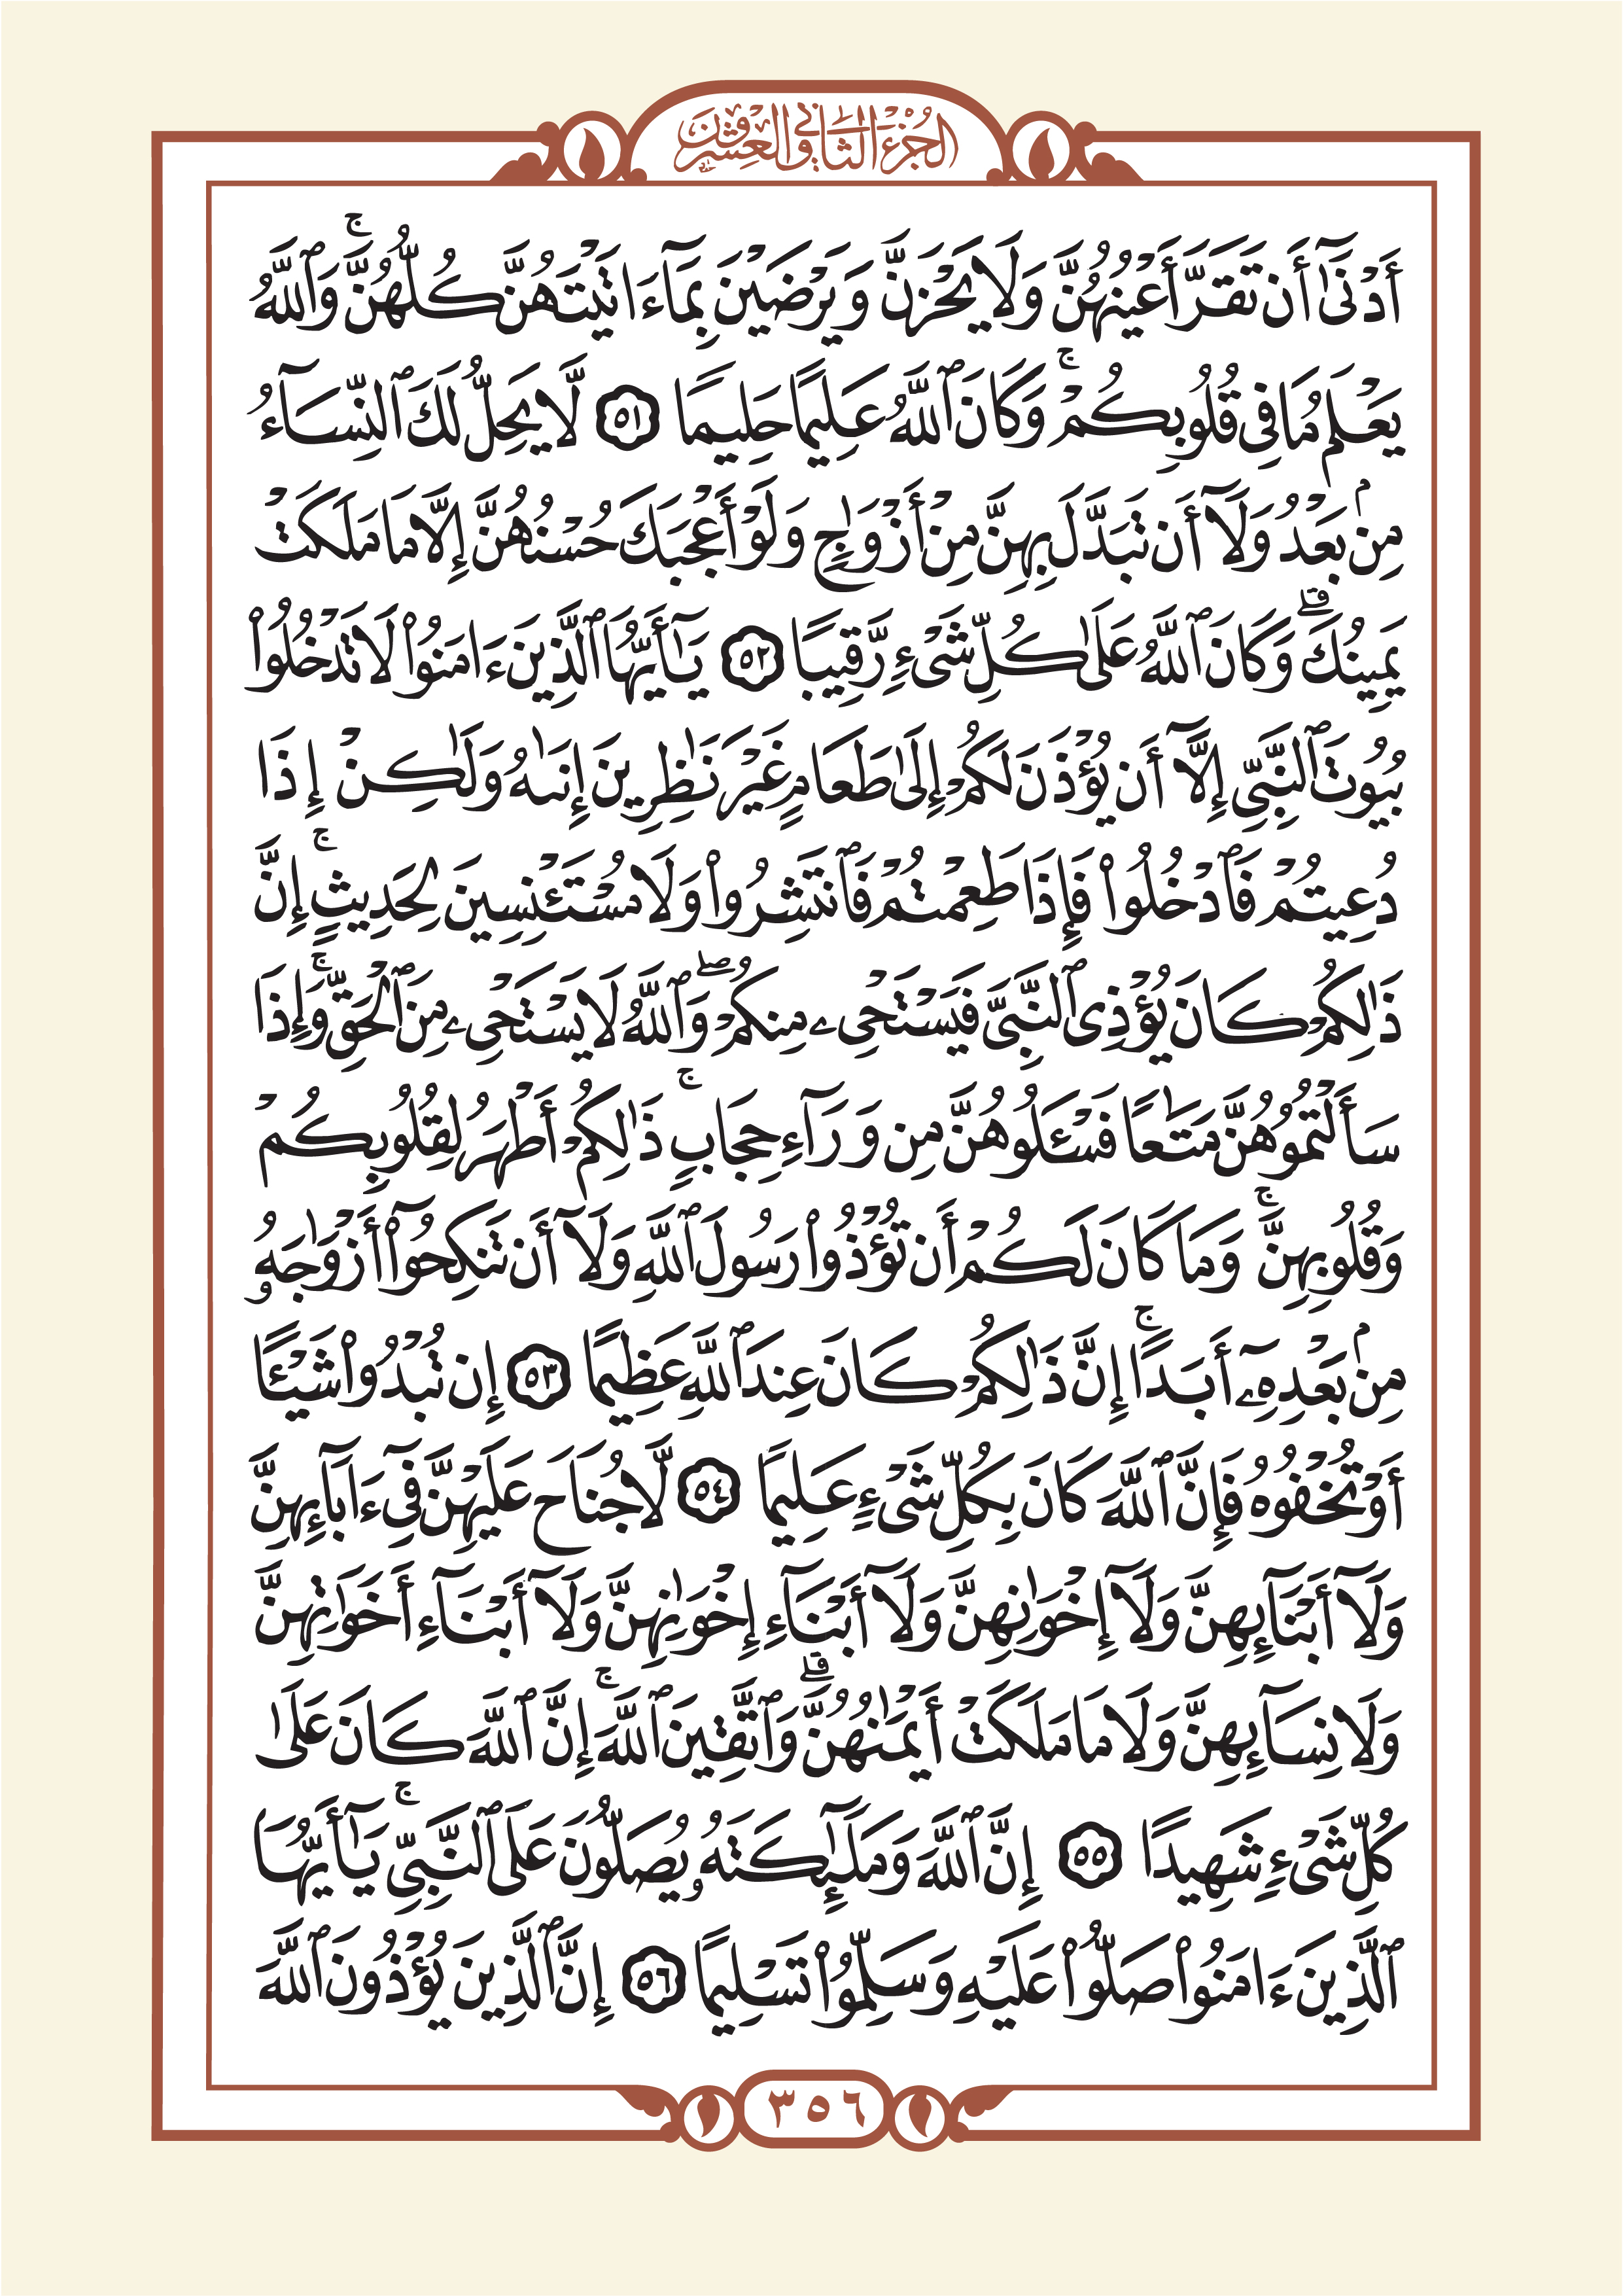 الجزء الثاني والعشرون
أَدۡنَىٰٓ أَن تَقَرَّ أَعۡيُنُهُنَّ وَلَا يَحۡزَنَّ وَيَرۡضَيۡنَ بِمَآ ءَاتَيۡتَهُنَّ كُلُّهُنَّۚ وَٱللَّهُ
يَعۡلَمُ مَا فِي قُلُوبِكُمۡۚ وَكَانَ ٱللَّهُ عَلِيمًا حَلِيمٗا ٥١ لَّا يَحِلُّ لَكَ ٱلنِّسَآءُ
مِنۢ بَعۡدُ وَلَآ أَن تَبَدَّلَ بِهِنَّ مِنۡ أَزۡوَٰجٖ وَلَوۡ أَعۡجَبَكَ حُسۡنُهُنَّ إِلَّا مَا مَلَكَتۡ
يَمِينُكَۗ وَكَانَ ٱللَّهُ عَلَىٰ كُلِّ شَيۡءٖ رَّقِيبٗا ٥٢ يَٰٓأَيُّهَا ٱلَّذِينَ ءَامَنُواْ لَا تَدۡخُلُواْ
بُيُوتَ ٱلنَّبِيِّ إِلَّآ أَن يُؤۡذَنَ لَكُمۡ إِلَىٰ طَعَامٍ غَيۡرَ نَٰظِرِينَ إِنَىٰهُ وَلَٰكِنۡ إِذَا
دُعِيتُمۡ فَٱدۡخُلُواْ فَإِذَا طَعِمۡتُمۡ فَٱنتَشِرُواْ وَلَا مُسۡتَـٔۡنِسِينَ لِحَدِيثٍۚ إِنَّ
ذَٰلِكُمۡ كَانَ يُؤۡذِي ٱلنَّبِيَّ فَيَسۡتَحۡيِۦ مِنكُمۡۖ وَٱللَّهُ لَا يَسۡتَحۡيِۦ مِنَ ٱلۡحَقِّۚ وَإِذَا
سَأَلۡتُمُوهُنَّ مَتَٰعٗا فَسۡـَٔلُوهُنَّ مِن وَرَآءِ حِجَابٖۚ ذَٰلِكُمۡ أَطۡهَرُ لِقُلُوبِكُمۡ
وَقُلُوبِهِنَّۚ وَمَا كَانَ لَكُمۡ أَن تُؤۡذُواْ رَسُولَ ٱللَّهِ وَلَآ أَن تَنكِحُوٓاْ أَزۡوَٰجَهُۥ
مِنۢ بَعۡدِهِۦٓ أَبَدًاۚ إِنَّ ذَٰلِكُمۡ كَانَ عِندَ ٱللَّهِ عَظِيمًا ٥٣ إِن تُبۡدُواْ شَيۡـًٔا
أَوۡ تُخۡفُوهُ فَإِنَّ ٱللَّهَ كَانَ بِكُلِّ شَيۡءٍ عَلِيمٗا ٥٤ لَّا جُنَاحَ عَلَيۡهِنَّ فِيٓ ءَابَآئِهِنَّ
وَلَآ أَبۡنَآئِهِنَّ وَلَآ إِخۡوَٰنِهِنَّ وَلَآ أَبۡنَآءِ إِخۡوَٰنِهِنَّ وَلَآ أَبۡنَآءِ أَخَوَٰتِهِنَّ
وَلَا نِسَآئِهِنَّ وَلَا مَا مَلَكَتۡ أَيۡمَٰنُهُنَّۗ وَٱتَّقِينَ ٱللَّهَۚ إِنَّ ٱللَّهَ كَانَ عَلَىٰ
كُلِّ شَيۡءٖ شَهِيدًا ٥٥ إِنَّ ٱللَّهَ وَمَلَٰٓئِكَتَهُۥ يُصَلُّونَ عَلَى ٱلنَّبِيِّۚ يَٰٓأَيُّهَا
ٱلَّذِينَ ءَامَنُواْ صَلُّواْ عَلَيۡهِ وَسَلِّمُواْ تَسۡلِيمًا ٥٦ إِنَّ ٱلَّذِينَ يُؤۡذُونَ ٱللَّهَ
٣٥٦